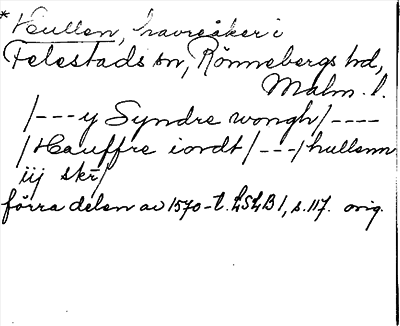 *Hullen, havreåker i
Felestads sn, Rönnebergs hd,
Malm. l.
/--- y Syndre wongh/----
/Hauffre iordt/---/hullenn
iij skr/
förra delen av 1570-t. LSLB 1, s. 117. orig.